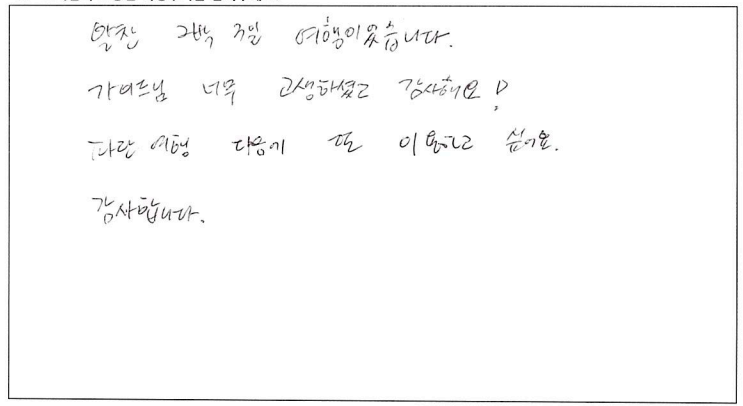 알찬 2박 3일 여행이었습니다.
가이드님 너무 고생하셨고 감사해요!
파란 여행 다음에 또 이용하고 싶어요.
감사합니다.